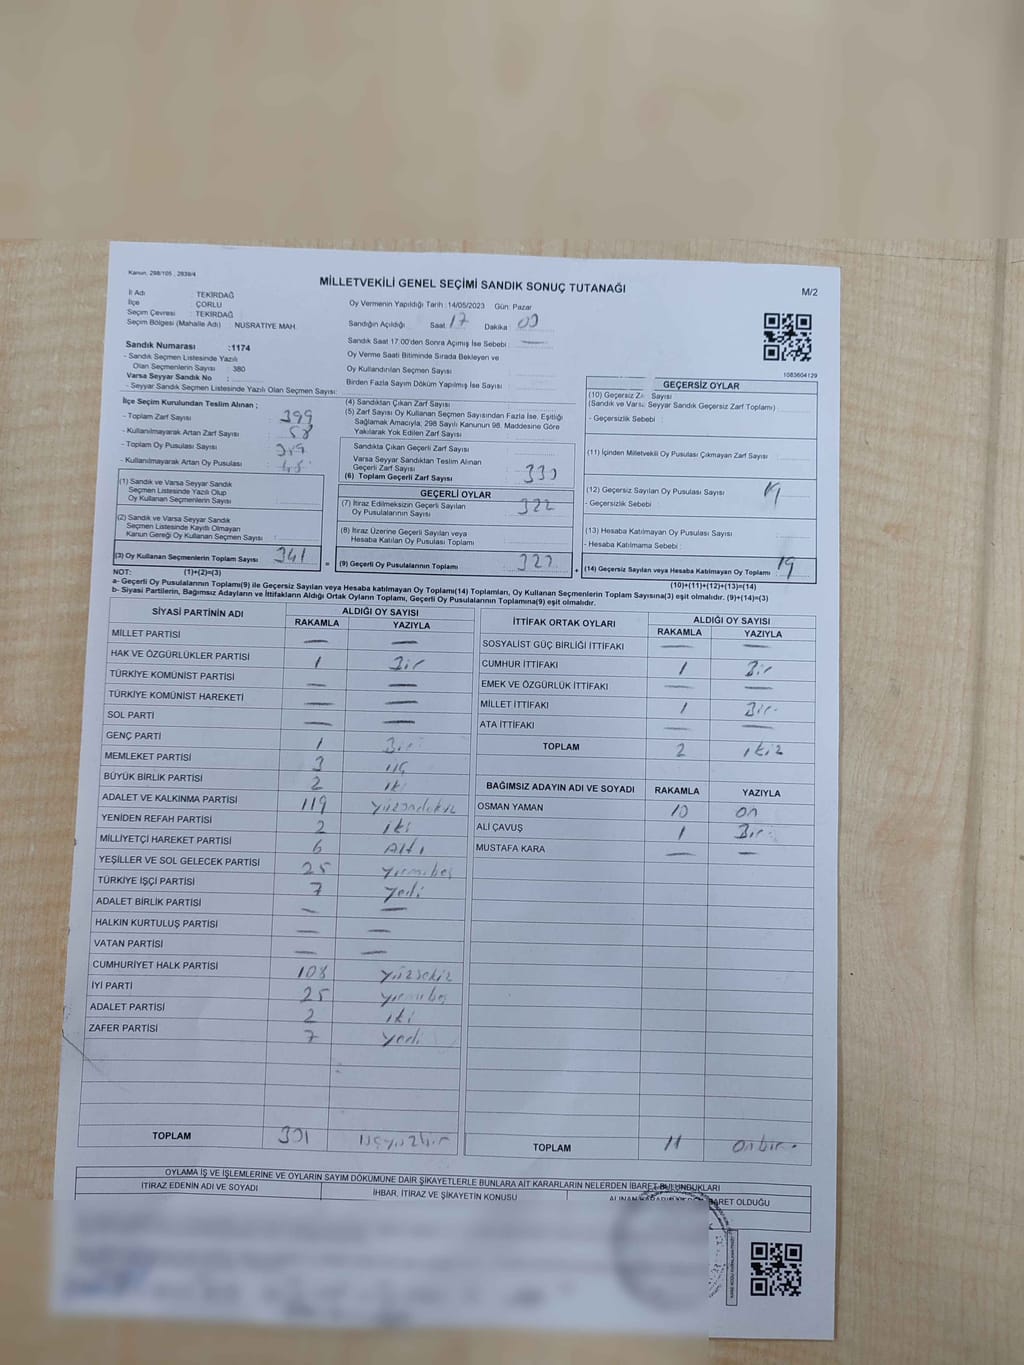 Kanun, 298/105 , 2839/4
MİLLETVEKİLİ GENEL SEÇİMİ SANDIK SONUÇ TUTANAĞI
M/2
İl Adı : TEKİRDAĞ
İlçe : ÇORLU
Seçim Çevresi : TEKİRDAĞ
Seçim Bölgesi (Mahalle Adı) : NUSRATİYE MAH.
Sandık Numarası :1174
- Sandık Seçmen Listesinde Yazılı
Olan Seçmenlerin Sayısı : 380
Varsa Seyyar Sandık No :
- Seyyar Sandık Seçmen Listesinde Yazılı Olan Seçmen Sayısı:
Oy Vermenin Yapıldığı Tarih : 14/05/2023 Gün: Pazar
Sandığın Açıldığı : Saat 17 Dakika : 00
Sandık Saat 17:00'den Sonra Açımış İse Sebebi :
Oy Verme Saati Bitiminde Sırada Bekleyen ve
Oy Kullandırılan Seçmen Sayısı
Birden Fazla Sayım Döküm Yapılmış İse Sayısı
1083604129
İlçe Seçim Kurulundan Teslim Alınan ;
- Toplam Zarf Sayısı : 399
- Kullanılmayarak Artan Zarf Sayısı : 58
- Toplam Oy Pusulası Sayısı
- Kullanılmayarak Artan Oy Pusulası
(1) Sandık ve Varsa Seyyar Sandık
Seçmen Listesinde Yazılı Olup
Oy Kullanan Seçmenlerin Sayısı
(2) Sandık ve Varsa Seyyar Sandık
Seçmen Listesinde Kayıtlı Olmayan
Kanun Gereği Oy Kullanan Seçmen Sayısı :
(3) Oy Kullanan Seçmenlerin Toplam Sayısı : 341
(4) Sandıktan Çıkan Zarf Sayısı :
(5) Zarf Sayısı Oy Kullanan Seçmen Sayısından Fazla İse, Eşitliği
Sağlamak Amacıyla, 298 Sayılı Kanunun 98. Maddesine Göre
Yakılarak Yok Edilen Zarf Sayısı :
Sandıkta Çıkan Geçerli Zarf Sayısı
Varsa Seyyar Sandıktan Teslim Alınan
Geçerli Zarf Sayısı
(6) Toplam Geçerli Zarf Sayısı : 330
GEÇERLİ OYLAR
(7) İtiraz Edilmeksizin Geçerli Sayılan
Oy Pusulalarının Sayısı : 322
(8) İtiraz Üzerine Geçerli Sayılan veya
Hesaba Katılan Oy Pusulası Toplamı
= (9) Geçerli Oy Pusulalarının Toplamı : 322 +
GEÇERSİZ OYLAR
(10) Geçersiz Sayısı
(Sandık ve Varsa Seyyar Sandık Geçersiz Zarf Toplamı)
- Geçersizlik Sebebi :
(11) İçinden Milletvekili Oy Pusulası Çıkmayan Zarf Sayısı
(12) Geçersiz Sayılan Oy Pusulası Sayısı 19
- Geçersizlik Sebebi :
(13) Hesaba Katılmayan Oy Pusulası Sayısı
- Hesaba Katılmama Sebebi :
(14) Geçersiz Sayılan veya Hesaba Katılmayan Oy Toplamı : 19
NOT: (1)+(2)=(3)
(10)+(11)+(12)+(13)=(14)
a- Geçerli Oy Pusulalarının Toplamı(9) ile Geçersiz Sayılan veya Hesaba katılmayan Oy Toplamı(14) Toplamları, Oy Kullanan Seçmenlerin Toplam Sayısına(3) eşit olmalıdır. (9)+(14)=(3)
b- Siyasi Partilerin, Bağımsız Adayların ve İttifakların Aldığı Ortak Oyların Toplamı, Geçerli Oy Pusulalarının Toplamına(9) eşit olmalıdır.
SİYASİ PARTİNİN ADI ALDIĞI OY SAYISI
RAKAMLA YAZIYLA
MİLLET PARTİSİ — —
HAK VE ÖZGÜRLÜKLER PARTİSİ 1 Bir
TÜRKİYE KOMÜNİST PARTİSİ — —
TÜRKİYE KOMÜNİST HAREKETİ — —
SOL PARTİ — —
GENÇ PARTİ 1 Bir
MEMLEKET PARTİSİ 3 üç
BÜYÜK BİRLİK PARTİSİ 2 iki
ADALET VE KALKINMA PARTİSİ 119
YENİDEN REFAH PARTİSİ 2 iki
MİLLİYETÇİ HAREKET PARTİSİ 6 Altı
YEŞİLLER VE SOL GELECEK PARTİSİ 25 yirmibeş
TÜRKİYE İŞÇİ PARTİSİ 7 yedi
ADALET BİRLİK PARTİSİ — —
HALKIN KURTULUŞ PARTİSİ — —
VATAN PARTİSİ — —
CUMHURİYET HALK PARTİSİ 108 yüzsekiz
İYİ PARTİ 25 yirmibeş
ADALET PARTİSİ 2 iki
ZAFER PARTİSİ 7 yedi
TOPLAM
İTTİFAK ORTAK OYLARI ALDIĞI OY SAYISI
RAKAMLA YAZIYLA
SOSYALİST GÜÇ BİRLİĞİ İTTİFAKI — —
CUMHUR İTTİFAKI 1 Bir
EMEK VE ÖZGÜRLÜK İTTİFAKI — —
MİLLET İTTİFAKI 1 Bir
ATA İTTİFAKI — —
TOPLAM 2 ikiz
BAĞIMSIZ ADAYIN ADI VE SOYADI RAKAMLA YAZIYLA
OSMAN YAMAN 10 on
ALİ ÇAVUŞ 1 Bir
MUSTAFA KARA — —
TOPLAM 11 Onbir
OYLAMA İŞ VE İŞLEMLERİNE VE OYLARIN SAYIM DÖKÜMÜNE DAİR ŞİKAYETLERLE BUNLARA AİT KARARLARIN NELERDEN İBARET BULUNDUKLARI
İTİRAZ EDENİN ADI VE SOYADI
İHBAR, İTİRAZ VE ŞİKAYETİN KONUSU